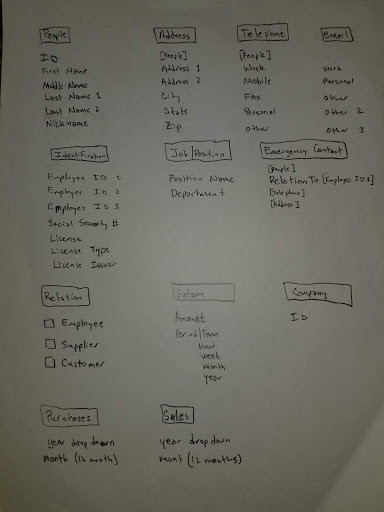 People
ID
First Name
Middle Name
Last Name 1
Last Name 2
Nickname
Address
[People]
Address 1
Address 2
City
State
Zip
Telephone
[People]
Work
Mobile
FAX
Personal
other
email
work
Personal
other
other 2
other 3
Identification
Employee ID 1
Employer ID 2
Employer ID 3
Social Security #
License
License Type
License Issuer
Job/Position
Position Name
Department
Emergency Contact
[People]
Relation To [Employee ID1]
[Telephone]
[Address]
Relation
Employee
Supplier
Customer
Salary
Amount
Period/Term
Hour
week
Month
year
Company
ID
Purchases
year drop down
Month (12 month)
Sales
year drop down
mont (12 months)